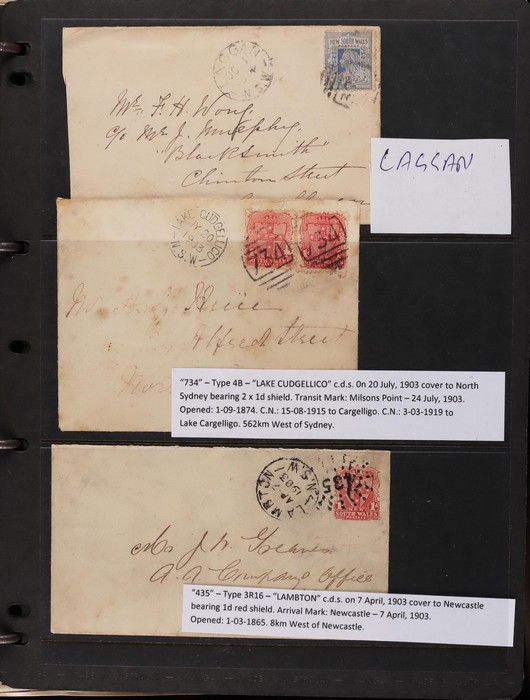 LAGGAN
N.S.W
NEW SOUTH WALES
POSTAGE
Mr. F. H. Wong,
c/o Mr J. Murphy,
"Blacksmith"
Clinton Street
LAGGAN
LAKE CUDGELLICO
JY 20
1903
N.S.W
734
734
Alfred Street
"734" – Type 4B – "LAKE CUDGELLICO" c.d.s. 0n 20 July, 1903 cover to North
Sydney bearing 2 x 1d shield. Transit Mark: Milsons Point – 24 July, 1903.
Opened: 1-09-1874. C.N.: 15-08-1915 to Cargelligo. C.N.: 3-03-1919 to
Lake Cargelligo. 562km West of Sydney.
LAMBTON
AP 7
1903
N.S.W
435
1d
SOUTH WALES
POSTAGE
Mr J. W. Greaves
A. A. Company's Office
"435" – Type 3R16 – "LAMBTON" c.d.s. on 7 April, 1903 cover to Newcastle
bearing 1d red shield. Arrival Mark: Newcastle – 7 April, 1903.
Opened: 1-03-1865. 8km West of Newcastle.